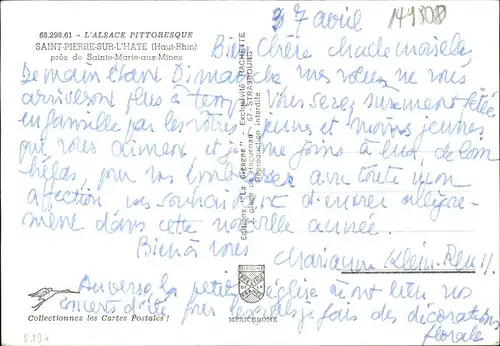 68.298.61 - L'ALSACE PITTORESQUE
SAINT-PIERRE-SUR-L'HATE (Haut-Rhin)
près de Sainte-Marie-aux-Mines
7 avril
149808
Bien Chère Mademoiselle
Demain étant Dimanche mes vœux ne vous
arriveront plus à temps. Vous serez surement fêtée
en famille par les vôtres, jeunes et moins jeunes
qui vous aiment et je me joins à eux, de loin
hélas, pour vous avec toute mon
affection vous souhaitant d'entrer allègre-
ment dans cette nouvelle année.
Bien à vous
Marianne Klein
Au verso la petite église où ont lieu nos
concerts d'été pour lesquels je fais des décorations
florales
Editions "La Cigogne" - Exclusivité HACHETTE
67-STRASBOURG
Reproduction interdite
Collectionnez les Cartes Postales !
MEXICHROME